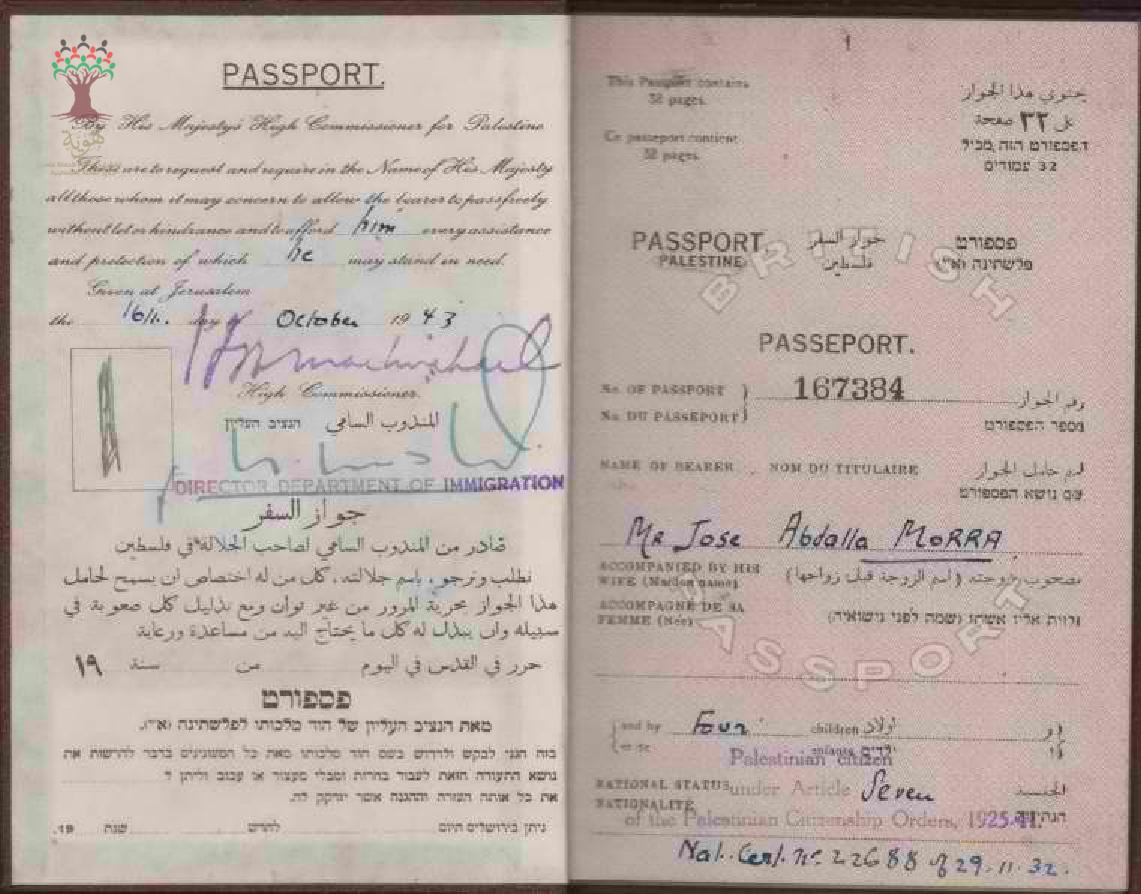 PASSPORT.
هوية
By His Majesty's High Commissioner for Palestine
These are to request and require in the Name of His Majesty
all those whom it may concern to allow the bearer to pass freely
without let or hindrance and to afford him every assistance
and protection of which he may stand in need.
Given at Jerusalem
the 16th. day of October 1943
High Commissioner.
المندوب السامي הנציב העליון
DIRECTOR DEPARTMENT OF IMMIGRATION
جواز السفر
صادر من المندوب السامي لصاحب الجلالة في فلسطين
نطلب ونرجو، باسم جلالته، كل من له اختصاص ان يسمح لحامل
هذا الجواز بحرية المرور من غير توان ومع تذليل كل صعوبة في
سبيله وان يبذل له كل ما يحتاج اليه من مساعدة ورعاية
حرر في القدس في اليوم من سنة ١٩
פספורט
מאת הנציב העליון של הוד מלכותו לפלשתינה (א״י).
הננו לבקש ולדרוש בשם הוד מלכותו מאת כל המעונינים בדבר להרשות את
נושא התעודה הזאת לעבור בחרות ומבלי מעצור או עכוב וליתן ל
את כל אותה העזרה וההגנה אשר יזדקק לה.
ניתן בירושלים היום לחדש שנת 19.
1
This Passport contains
32 pages.
Ce passeport contient
32 pages.
يحتوي هذا الجواز
على ٣٢ صفحة
הפספורט הזה מכיל
32 עמודים
PASSPORT. جواز السفر פספורט
PALESTINE فلسطين פלשתינה (א״י)
BRITISH
PASSPORT
PASSEPORT.
No. OF PASSPORT } 167384 رقم الجواز
No. DU PASSEPORT } מספר הפספורט
NAME OF BEARER NOM DU TITULAIRE اسم حامل الجواز
שם נושא הפספורט
Mr Jose Abdalla MORRA
ACCOMPANIED BY HIS WIFE (Maiden name) مصحوب بزوجته (اسم الزوجة قبل زواجها)
ACCOMPAGNÉ DE SA FEMME (Née) נלוית אליו אשתו (שמה לפני נישואיה)
and by Four children اولاد و
et de enfants ילדים
Palestinian citizen
NATIONAL STATUS under Article Seven الجنسية
NATIONALITÉ הנתינות
of the Palestinian Citizenship Orders, 1925-41.
Nat. Cert. No 22688 of 29.11.32.